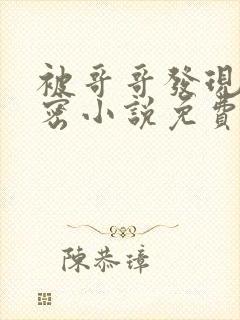 被哥哥發現
密小說免費
陳恭璋